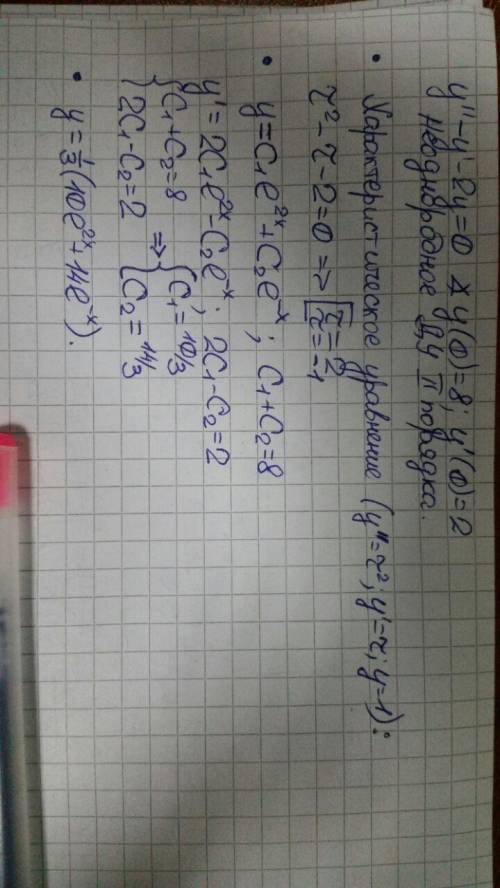 y''-y'-2y=0 ∧ y(0)=8; y'(0)=2
неоднородное ДУ II порядка.
• Характеристическое уравнение (y''=r²; y'=r; y=1):
r²-r-2=0 => [r=2 r=-1
• y=C1e^2x+C2e^-x; C1+C2=8
y'=2C1e^2x-C2e^-x; 2C1-C2=2
{C1+C2=8 2C1-C2=2 => {C1=10/3 C2=14/3
• y=1/3(10e^2x+14e^-x).